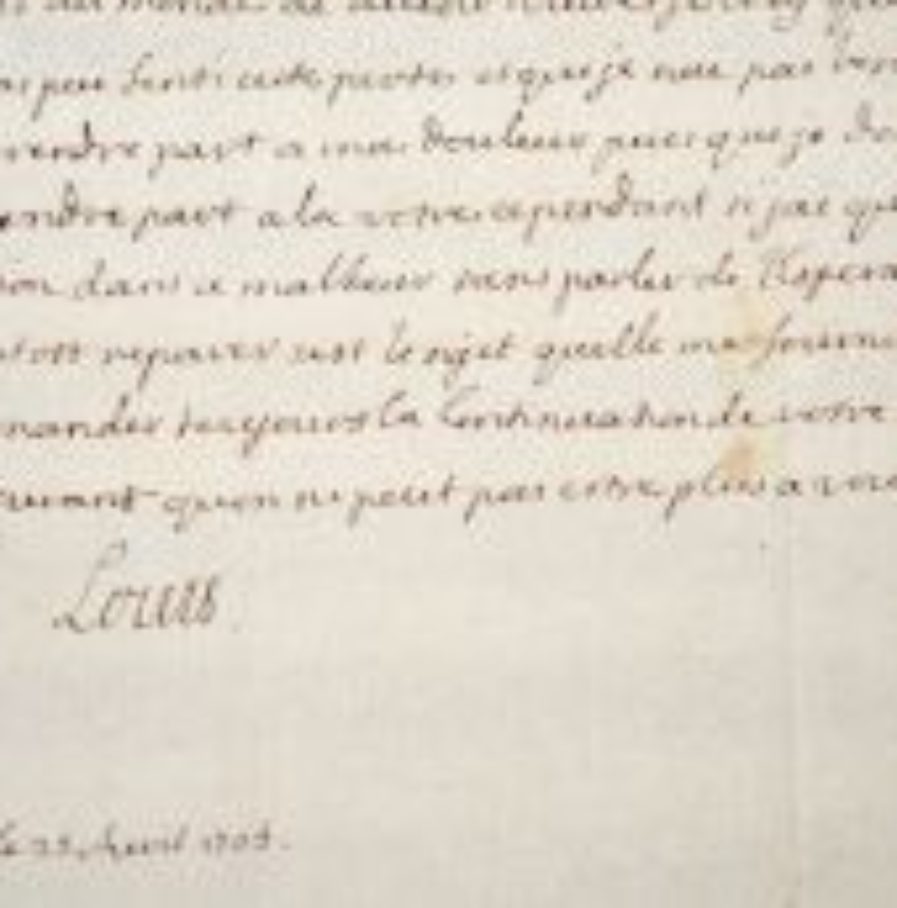 du monde de
peu senti cette perte et que je nae pas
rendre part a ma douleur puis que je
endre part a la vostre cependant si jae que
ion dans ce malheur sans parler de l'espera
reparer est le sujet quelle me fourni
mander tousjours la continuation de vostre
quon ne peut pas estre plus a vou
Louis
le 25 Avril 1705.